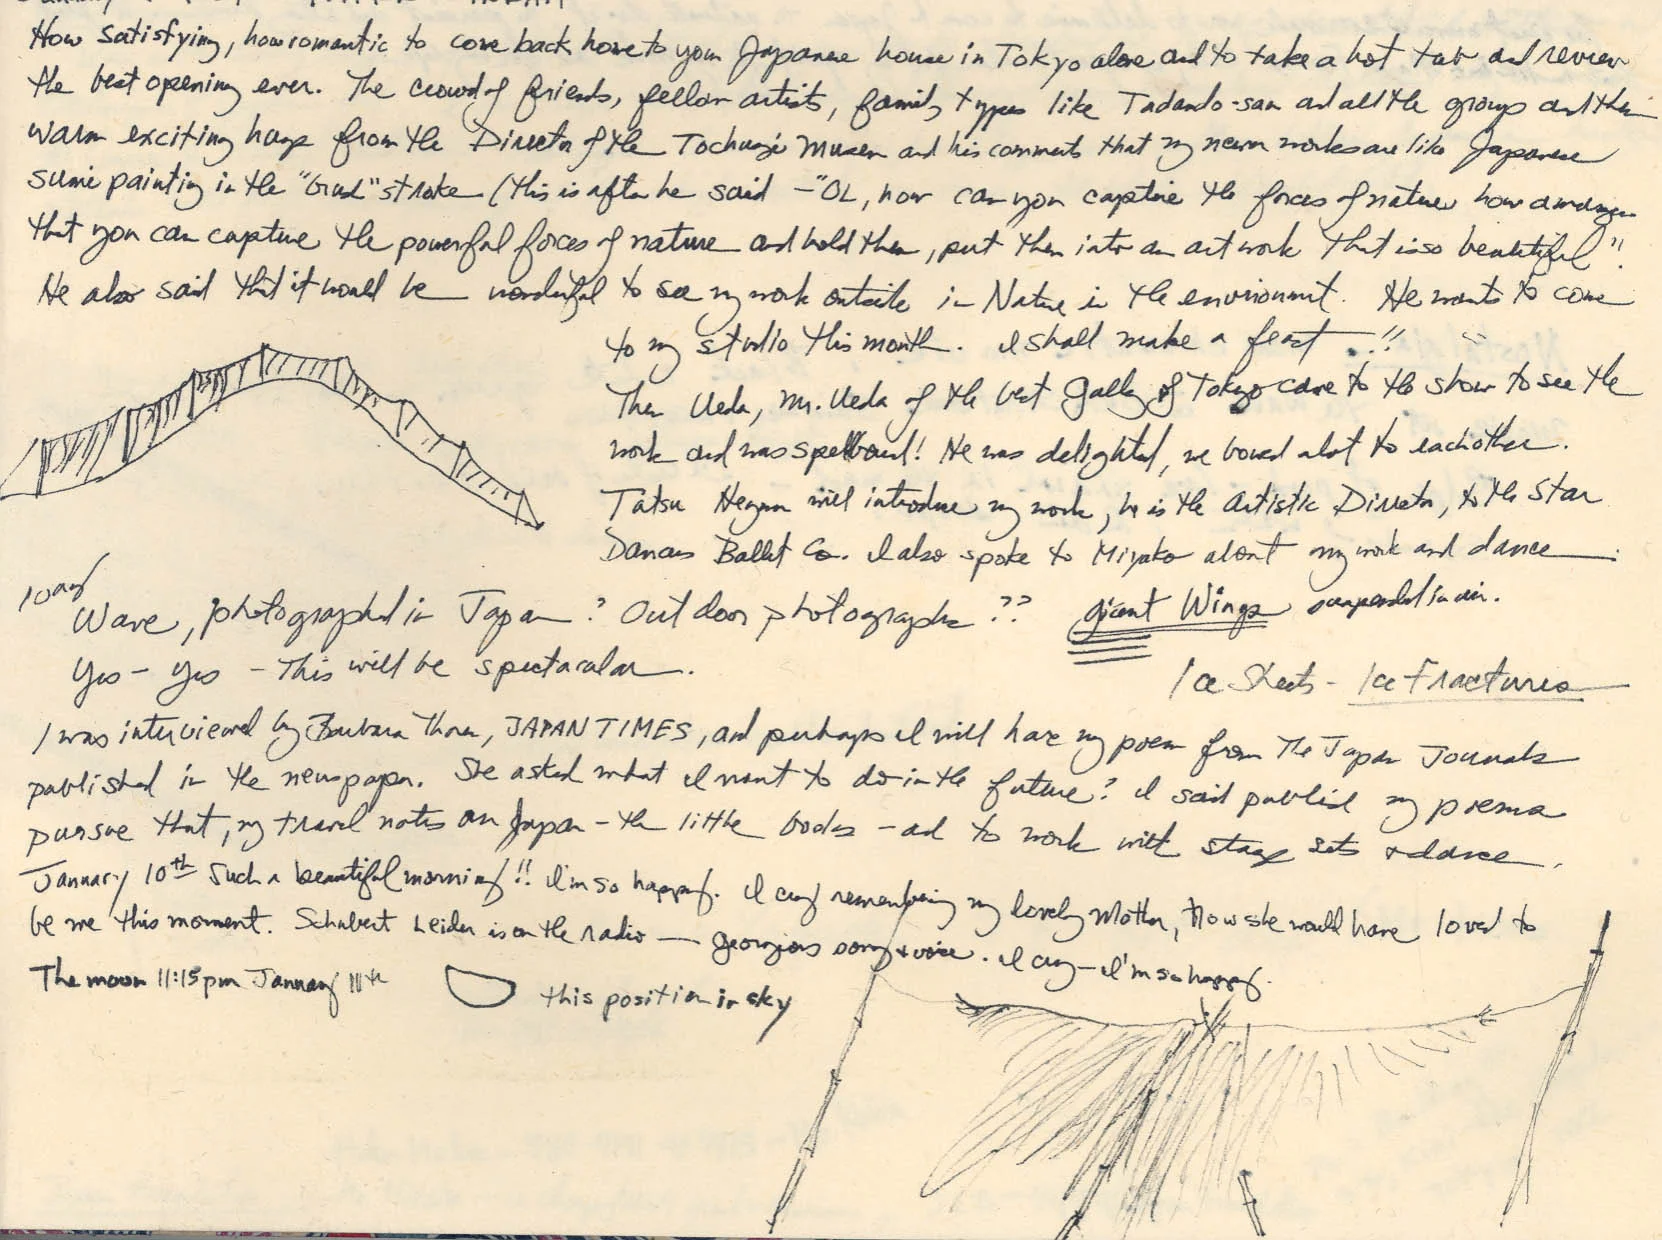 How satisfying, how romantic to come back home to your Japanese house in Tokyo alone and to take a hot tub and review
the best opening ever. The crowd of friends, fellow artists, family types like Tadando-san and all the group and their
warm exciting hugs from the Director of the Tochugi Museum and his comments that my newer works are like Japanese
sumi painting in the "brush" stroke (this is after he said - "OL, how can you capture the forces of nature how amazing
that you can capture the powerful forces of nature and hold them, put them into an art work that is so beautiful".
He also said that it would be wonderful to see my work outside in Nature in the environment. He wants to come
to my studio this month. I shall make a feast!!
Then Ueda, Mr. Ueda of the best Gallery of Tokyo came to the show to see the
work and was spellbound! He was delighted, we bowed alot to eachother.
Tatsu will introduce my work, he is the Artistic Director, to the Star
Dancers Ballet Co. I also spoke to Miyako about my work and dance
Wave, photographed in Japan? Outdoor photographs?? giant Wings suspended in air.
Yes - Yes - This will be spectacular.
Ice Sheets - Ice Fractures
I was interviewed by Barbara Thoren, JAPAN TIMES, and perhaps I will have my poem from The Japan Journals
published in the newspaper. She asked what I want to do in the future? I said publish my poems
pursue that, my travel notes on Japan - the little books - and to work with stage sets & dance.
January 10th Such a beautiful morning!! I'm so happy. I cry remembering my lovely Mother, How she would have loved to
be me this moment. Schubert Leider is on the radio — georgious song & voice. I cry - I'm so happy.
The moon 11:15pm January 11th this position in sky